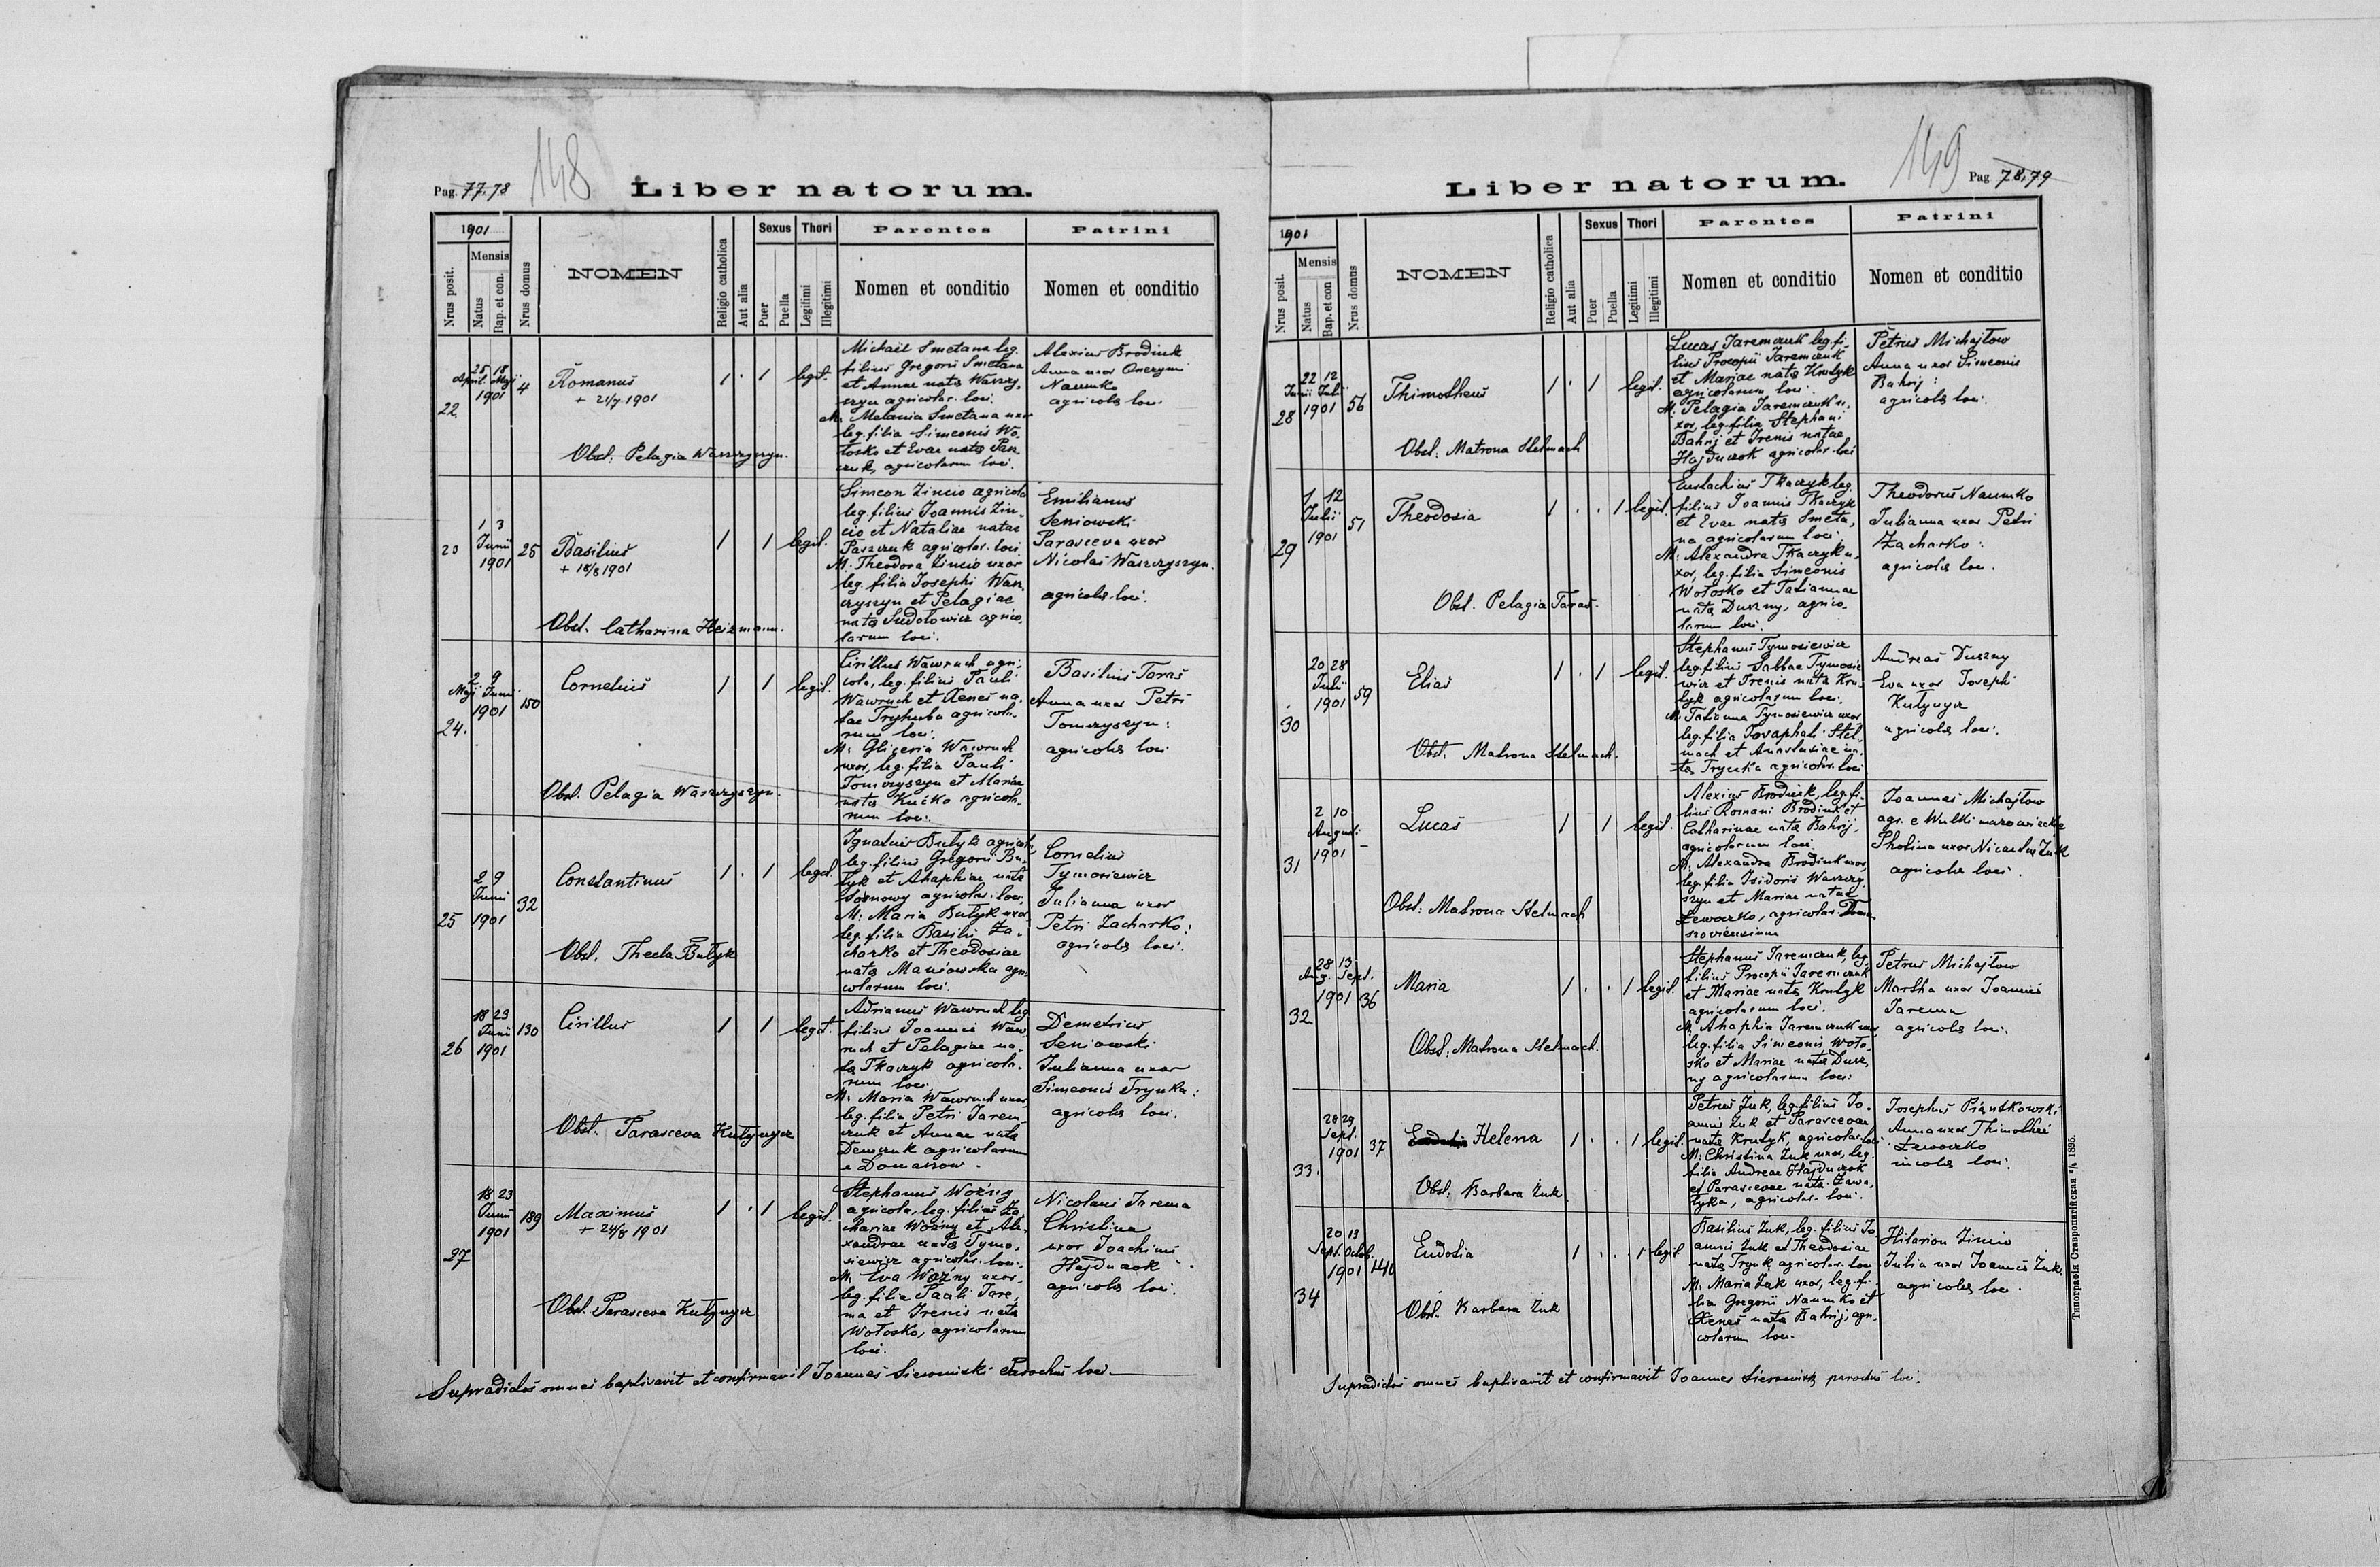 148
Pag. 77.78
Liber natorum.
1901
Nrus posit.
Mensis
Natus
Bap. et con.
Nrus domus
NOMEN
Religio catholica
Aut alia
Sexus
Puer
Puella
Thori
Legitimi
Illegitimi
Parentes
Nomen et conditio
Patrini
Nomen et conditio
22.
25 18
April. Maji
1901
4
Romanus
+ 21/7 1901
Obst: Pelagia Waszczyszyn.
1 . 1 legit.
Michaël Smetana leg.
filius Gregorii Smetana
et Annae nata Waszczy,
szyn agricolar. loci.
M: Melania Smetana uxor
leg. filia Simeonis Wo,
łosko et Evae nata Pasz
czuk, agricolarum loci.
Alexius Brodiuk
Anna uxor Onezymi
Naumko
agricolae loci
23
1 3
Junii
1901
25
Basilius
+ 18/8 1901
Obst. Catharina Heizmann.
1 1 legit.
Simeon Zincio agricola
leg. filius Joannis Zin,
cio et Nataliae natae
Paszczuk agricolar. loci.
M: Theodora Zincio uxor
leg. filia Josephi Wasz
czyszyn et Pelagiae
nata Sudołowicz agrico,
larum loci.
Emilianus
Seniowski
Parasceva uxor
Nicolai Waszczyszyn.
agricolae loci.
24.
2 9
Maji Junii
1901
150
Cornelius
Obst. Pelagia Waszczyszyn.
1 1 legit.
Cirillus Wawruch agri,
cola, leg. filius Pauli
Wawruch et Xeneš na,
tae Tryhuba agricola,
rum loci.
M: Gliceria Wawruch
uxor, leg. filia Pauli
Tomczyszyn et Mariae
nata Kućko agricola,
rum loci.
Basilius Taras
Anna uxor Petri
Tomczyszyn:
agricolae loci
25
2 9
Junii
1901
32
Constantinus
Obst. Thecla Bułyk
1 . 1 legit.
Ignatius Bułyk agricola
leg. filius Gregorii Bu,
łyk et Ahaphiae nata
Sosnowy agricolar. loci.
M: Maria Bułyk uxor
leg. filia Basilii Za,
charko et Theodosiae
nata Maniowska agri,
colarum loci.
Cornelius
Tymosiewicz
Julianna uxor
Petri Zacharko:
agricolae loci.
26
18 23
Junii
1901
130
Cirillus
Obst. Parasceva Kułynycz
1 1 legit.
Adrianus Wawruch leg
filius Joannis Waw,
ruch et Pelagiae na,
ta Tkaczyk agricola,
rum loci.
M: Maria Wawruch uxor
leg. filia Petri Jarem
czuk et Annae nata
Demczuk agricolarum
e Domaszow.
Demetrius
Seniowski
Julianna uxor
Simeonis Trynka:
agricolae loci.
27
18 23
Junii
1901
189
Maximus
+ 24/8 1901
Obst. Parasceva Kułynycz
1 . 1 legit.
Stephanus Woźny
agricola, leg. filius Za,
chariae Woźny et Ale,
xandrae nata Tymo,
siewicz agricolar. loci.
M: Eva Woźny uxor,
leg. filia Pauli Jare,
ma et Irenis nata
Wołosko, agricolarum
loci.
Nicolaus Jarema
Christina
uxor Joachimi
Hajduczok
agricolae loci.
Supradictos omnes baptisavit et confirmavit Joannes Sieroinski Parochus loci.
149
Pag 78,79
Liber natorum.
1901
Nrus posit.
Mensis
Natus
Bap. et con
Nrus domus
NOMEN
Religio catholica
Aut alia
Sexus
Puer
Puella
Thori
Legitimi
Illegitimi
Parentes
Nomen et conditio
Patrini
Nomen et conditio
28
22 12
Junii Julii
1901
56
Thimotheus
Obst: Matrona Stelmach
1 . 1 legit.
Lucas Jaremczuk leg. fi,
lius Procopii Jaremczuk
et Mariae nata Krutyk
agricolarum loci.
M: Pelagia Jaremczuk u,
xor, leg. filia Stephani
Bahrij et Irenis natae
Hajduczok agricolar. loci
Petrus Michajłow
Anna uxor Simeonis
Bahrij:
agricolae loci.
29
1 12
Julii
1901
51
Theodosia
Obst. Pelagia Taras.
1 . . 1 legit.
Eustachius Tkaczyk leg.
filius Joannis Tkaczyk
et Evae nata Smeta,
na agricolarum loci
M: Alexandra Tkaczyk u,
xor, leg. filia Simeonis
Wołosko et Tatiannae
nata Duszny, agrico,
larum loci.
Theodorus Naumko
Julianna uxor Petri
Zacharko:
agricolae loci.
30
20 28
Julii
1901
59
Elias
Obst. Matrona Stelmach.
1 . 1 legit.
Stephanus Tymosiewicz
leg. filius Sabbae Tymosie
wicz et Irenis nata Kru,
tyk agricolarum loci.
M: Tatianna Tymosiewicz uxor
leg. filia Josaphati Stel,
mach et Anastasiae na,
ta Trynka agricolar. loci
Andreas Duszny
Eva uxor Josephi
Kułynycz
agricolae loci.
31
2 10
August.
1901
–
Lucas
Obst: Matrona Stelmach
1 1 legit.
Alexius Brodiuk, leg. fi,
lius Romani Brodiuk et
Catharinae nata Bahrij,
agricolarum loci.
M: Alexandra Brodiuk uxor,
leg. filia Isidoris Waszczy,
szyn et Mariae natae
Lewoczko, agricolar. Doma
szoviensium
Joannes Michajłow
agr. e Wulki mazowieckie
Photina uxor Nicandri Żuk
agricolae loci.
32
28 13
Aug. Sept.
1901
36
Maria
Obst: Matrona Stelmach.
1 . . 1 legit.
Stephanus Jaremczuk, leg.
filius Procopii Jaremczuk
et Mariae nata Krutyk
agricolarum loci.
M: Ahaphia Jaremczuk uxor
leg. filia Simeonis Woło,
sko et Mariae nata Dusz,
ny agricolarum loci.
Petrus Michajłow
Martha uxor Joannis
Jarema
agricolae loci.
33.
28 29
Sept.
1901
37
Helena
Obst. Barbara Żuk.
1 . . 1 legit.
Petrus Żuk, leg. filius Jo,
annis Żuk et Parascevae
nata Krutyk, agricolar. loci
M: Christina Żuk uxor, leg.
filia Andreae Hajduczok
et Parascevae nata Zawa,
łyka, agricolar. loci.
Josephus Piantkowski
Anna uxor Thimothei
Lewoczko
incolae loci.
34
20 13
Sept. Octob.
1901
140
Eudotia
Obst. Barbara Żuk
1 . . 1 legit
Basilius Żuk, leg. filius Jo
annis Żuk et Theodosiae
nata Trynk agricolar. loci
M: Maria Żuk uxor, leg. fi,
lia Gregorii Naumko et
Xeneš nata Bahrij, agri,
colarum loci.
Hilarion Zincio
Julia uxor Joannis Żuk:
agricolae loci.
Supradictos omnes baptisavit et confirmavit Joannes Sieroinski parochus loci.
Типографія Ставропигійская 1895.